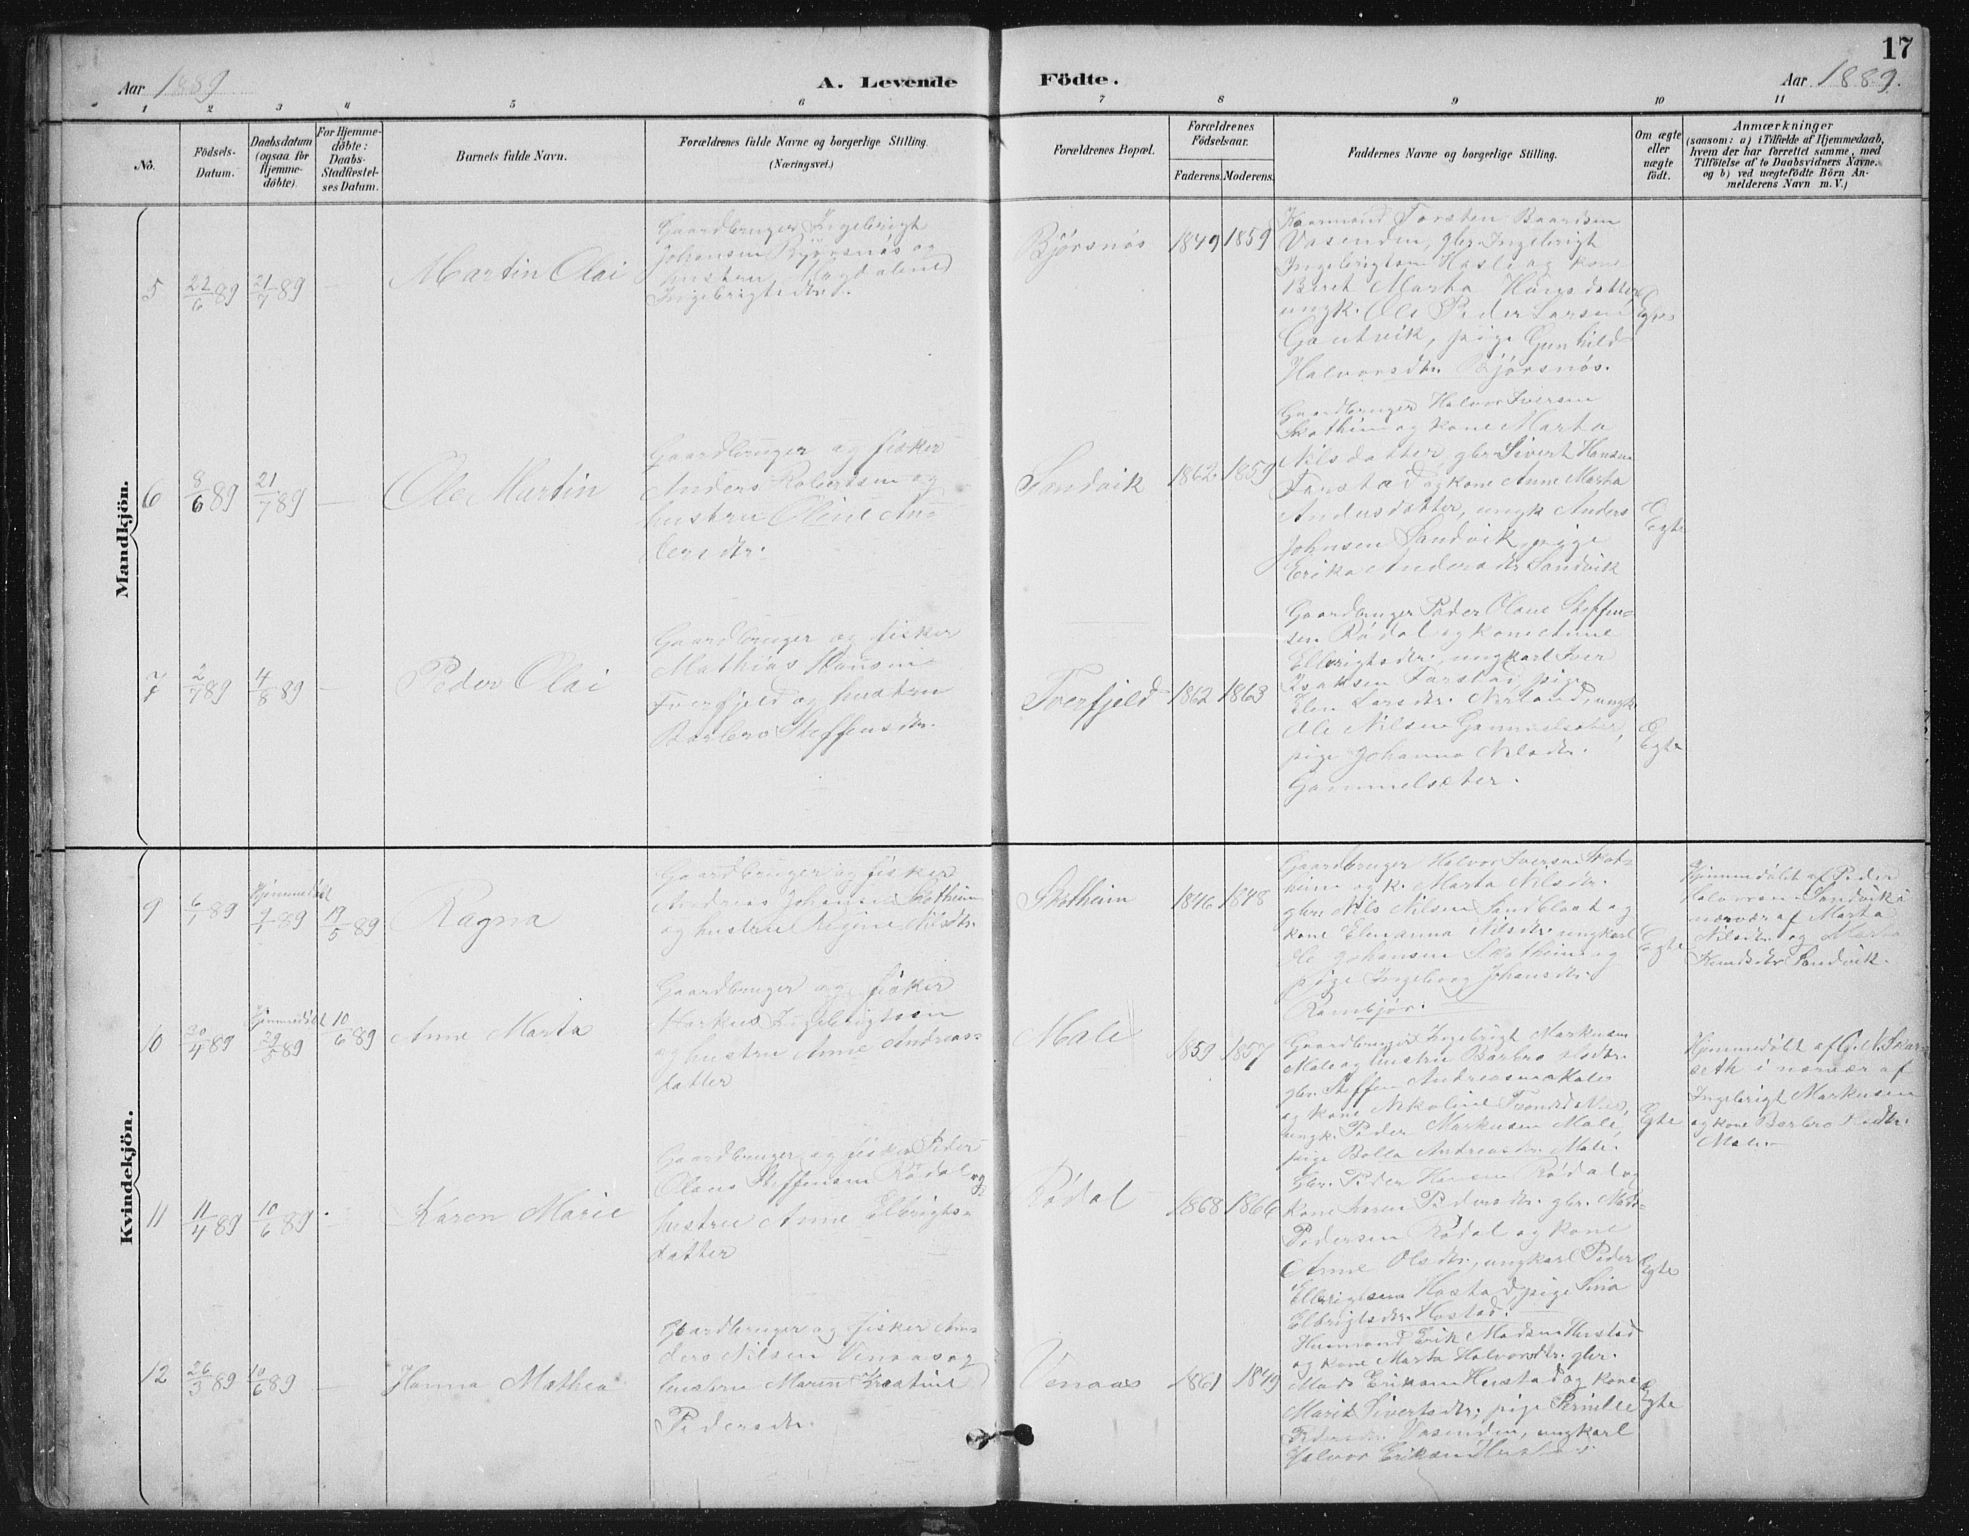 17
Aar 1889
A. Levende
Födte.
Aar 1889.
1 2 3 4 5 6 7 8 9 10 11
No.
Födsels-
Datum.
Daabsdatum
(ogsaa for
Hjemme-
döbte)
For Hjemme-
döbte:
Daabs-
Stadfæstel-
ses Datum.
Barnets fulde Navn.
Forældrenes fulde Navne og borgerlige Stilling
(Næringsvei.)
Forældrenes Bopæl.
Forældrenes
Födselsaar.
Faderens.
Moderens.
Faddernes Navne og borgerlige Stilling.
Om ægte
eller
uægte
födt.
Anmærkninger
(saasom: a) i Tilfælde af Hjemmedaab,
hvem der har forrettet samme, med
Tilföielse af to Daabsvidners Navne.
og b) ved uægtefödte Börn An-
melderens Navn m. V.)
Mandkjön.
5
22/6 89
21/7 89
Martin Olai
Gaardbruger Ingebrigt
Johansen Bjørsnøs og
hustru Magdalene
Ingebrigtsdtr.
Bjørsnøs
1849
1859
Torsten Baardsen
Vasenden, gbr. Ingebrigt
Ingebrigtsen Hasle og kone
Beret Marta Hansdatter
ungk. Ole Peder Larsen
Gautvik, pige Gunhild
Halvorsdtr. Bjørsnøs.
Egte
6
8/6 89
21/7 89
Ole Martin
Gaardbruger og fisker
Anders Robertsen og
hustru Oline An-
dersdtr.
Sandvik
1862
1859
Gaardbruger Halvor Iversen
Skotheim og kone Marta
Nilsdatter gbr. Sivert Hansen
Farstad og kone Anne Marta
Andersdatter, ungk Anders
Johnsen Sandvik, pige
Erika Andersdtr Sandvik
Egte
7
2/7 89
4/8 89
Peder Olai
Gaardbruger og fisker
Mathias Hansen
Tverfjeld og hustru
Barbro Steffensdtr.
Tverfjeld
1862
1863
Gaardbruger Peder Olaus Steffen-
sen Rødal og kone Anne
Elbrigtsdtr, ungkarl Iver
Isaksen Farstad, pige
Elen Larsdtr. Nerland, ungk
Ole Nilsen Gammelsæter,
pige Johanna Nilsdtr.
Gammelsæter.
Egte
Kvindekjön.
9
6/1 89
Hjemmedöbt
89
19/5 89
Ragna
Gaardbruger og fisker
Andreas Johansen Skotheim
og hustru Regine Nilsdtr.
Skotheim
1846
1848
Gaardbruger Halvor Iversen Skot-
heim og k. Marta Nilsdtr.
gbr. Nils Nilsen Sandblaat og
kone Elenanna Nilsdtr. ungkarl
Ole Johansen Skotheim og
pige Ingeborg Johansdtr.
Egte
Hjemmedöbt af Peder
Halvorsen Sandvik i
nærvær af Marta
Nilsdtr. og Marta
Knudsdtr Sandvik.
10
30/4 89
Hjemmedöbt
89
10/6 89
Anne Marta
Gaardbruger og fisker
Markus Ingebrigtsen
og hustru Anne Andreas-
datter
Male
1859
1857
Gaardbruger Ingebrigt Markusen
Male og hustru Barbro
gbr. Steffen Andreasen Male
og kone Nikoline
ungk. Peder Markusen Male,
pige Bolla Andreasdtr. Male.
Egte
Hjemmedöbt af
i nærvær af
Ingebrigt Markusen
og kone Barbro
Male
11
11/4 89
10/6 89
Karen Marie
Gaardbruger og fisker Peder
Olaus Steffensen Rødal og
hustru Anne Elbrigts-
datter
Rødal
1868
1866
Gbr. Peder Hansen Rødal og
kone Karen Pedersdtr. gbr. Mads
Pedersen Rødal og kone
Anne Olsdtr., ungkarl Peder
Elbrigtsen Hostad, pige
Elbrigtsdtr. Hostad.
Egte
12
26/3 89
10/6 89
Hanna Mathea
Gaardbruger og fisker An-
ders Nilsen Venaas og
hustru Maren Kristine
Pedersdtr.
Venaas
1861
1849
Husmand Erik Madsen Hustad
og kone Marta Halvorsdtr. gbr.
Mads Eriksen Hustad og kone
Marit Sivertsdtr; pige Pernille
Pedersdtr Vasenden, ungkarl
Halvor Eriksen Hustad.
Egte